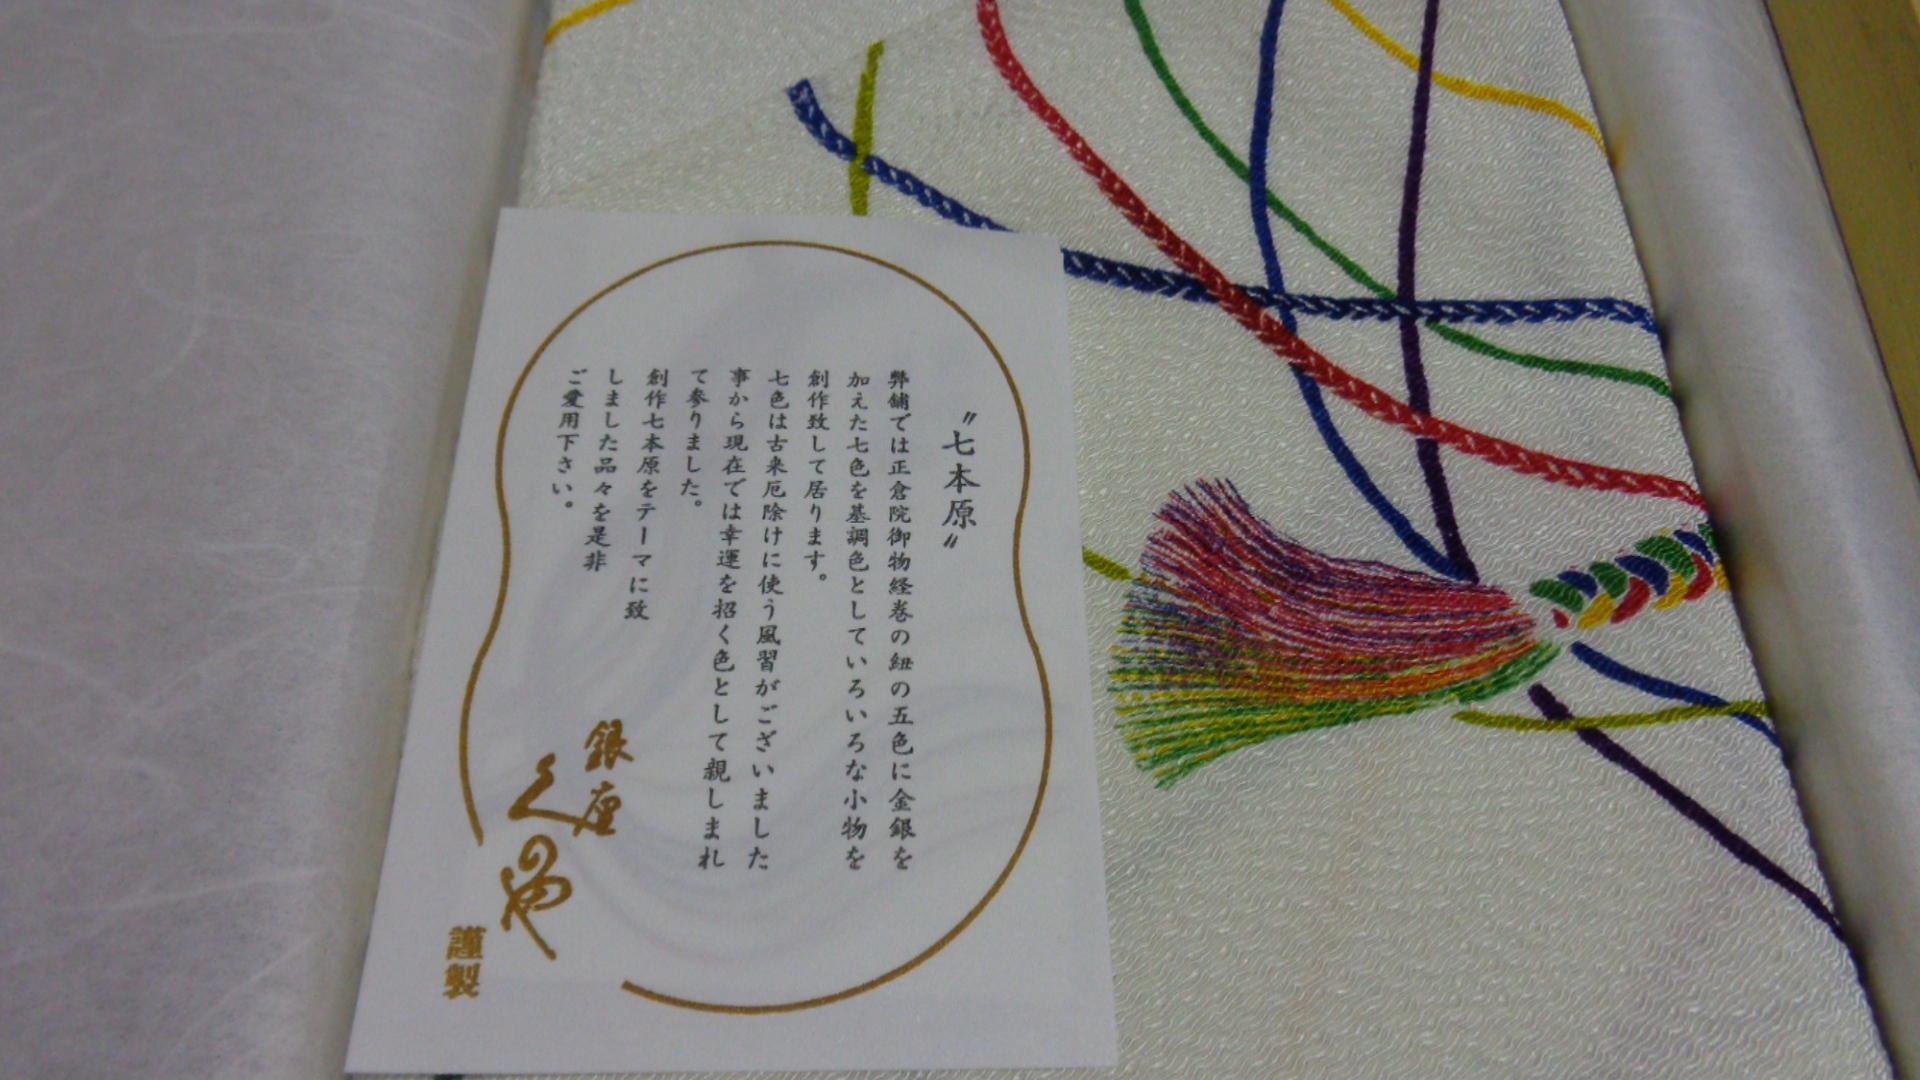 〝七本原〟
弊舗では正倉院御物経巻の紐の五色に金銀を
加えた七色を基調色としていろいろな小物を
創作致して居ります。
七色は古来厄除けに使う風習がございました
事から現在では幸運を招く色として親しまれ
て参りました。
創作七本原をテーマに致
しました品々を是非
ご愛用下さい。
銀座
謹製